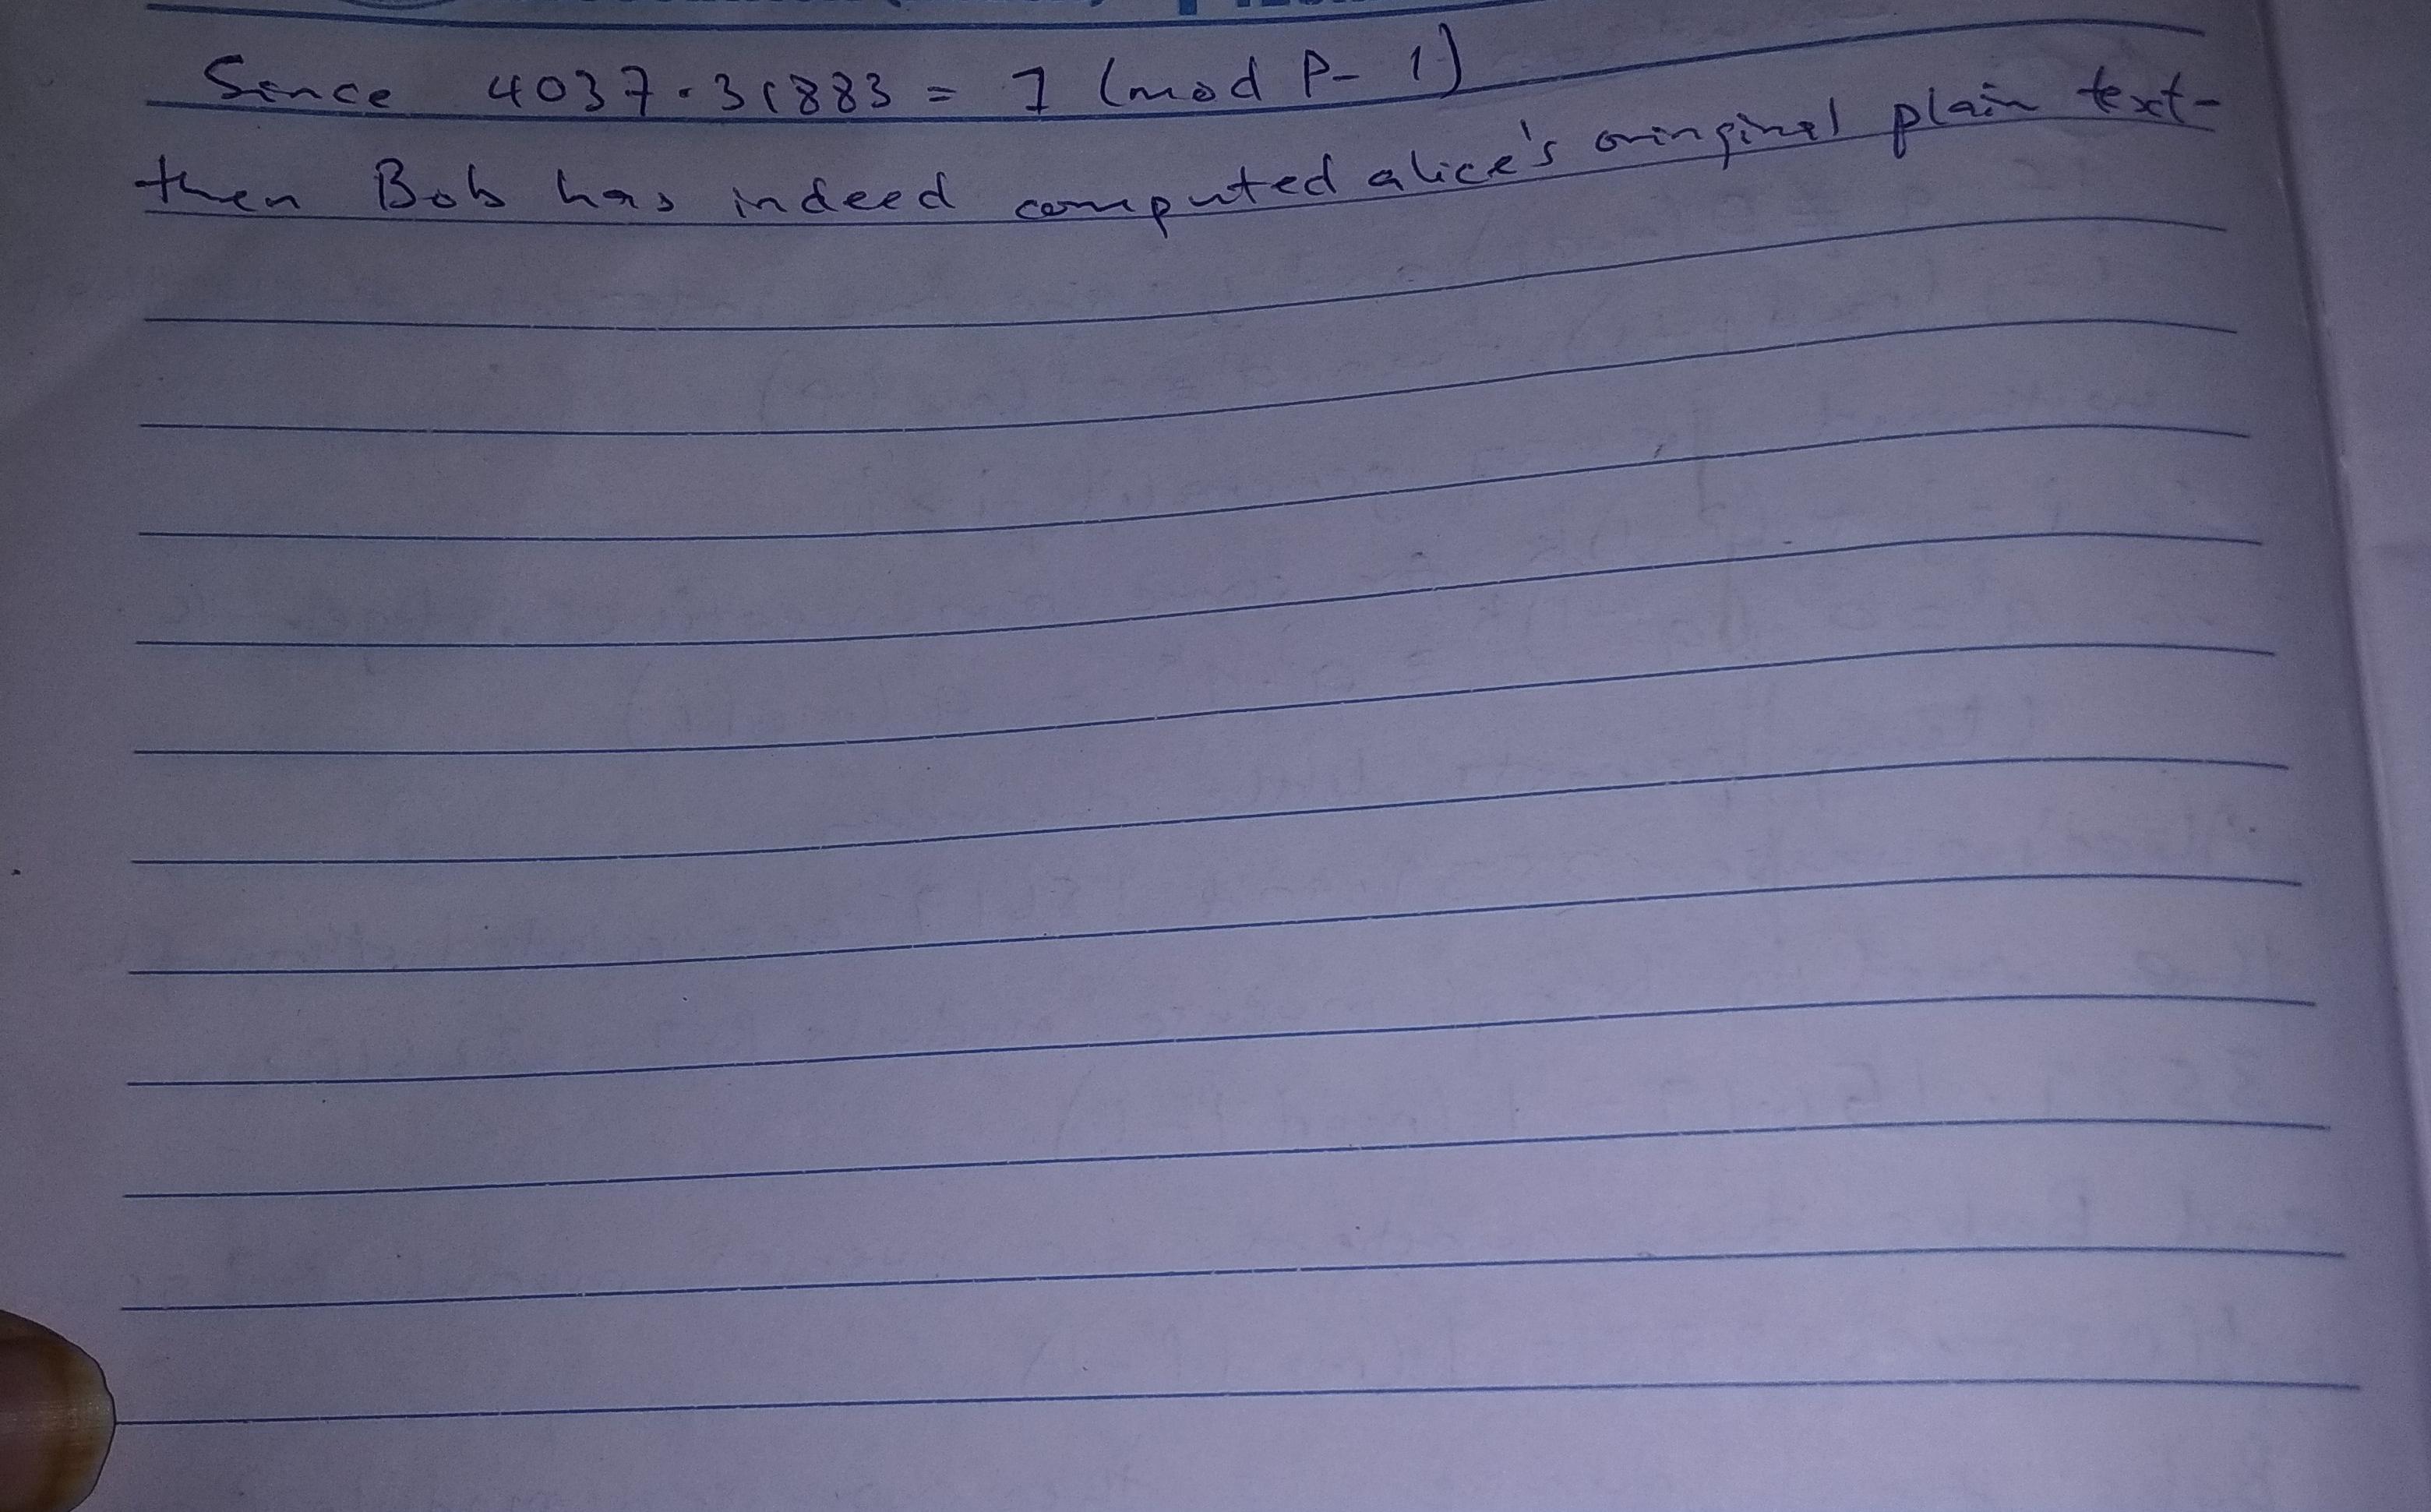 Since 4037.31883 = 1 (mod P- 1)
then Bob has indeed computed alice's oringinal plain text-